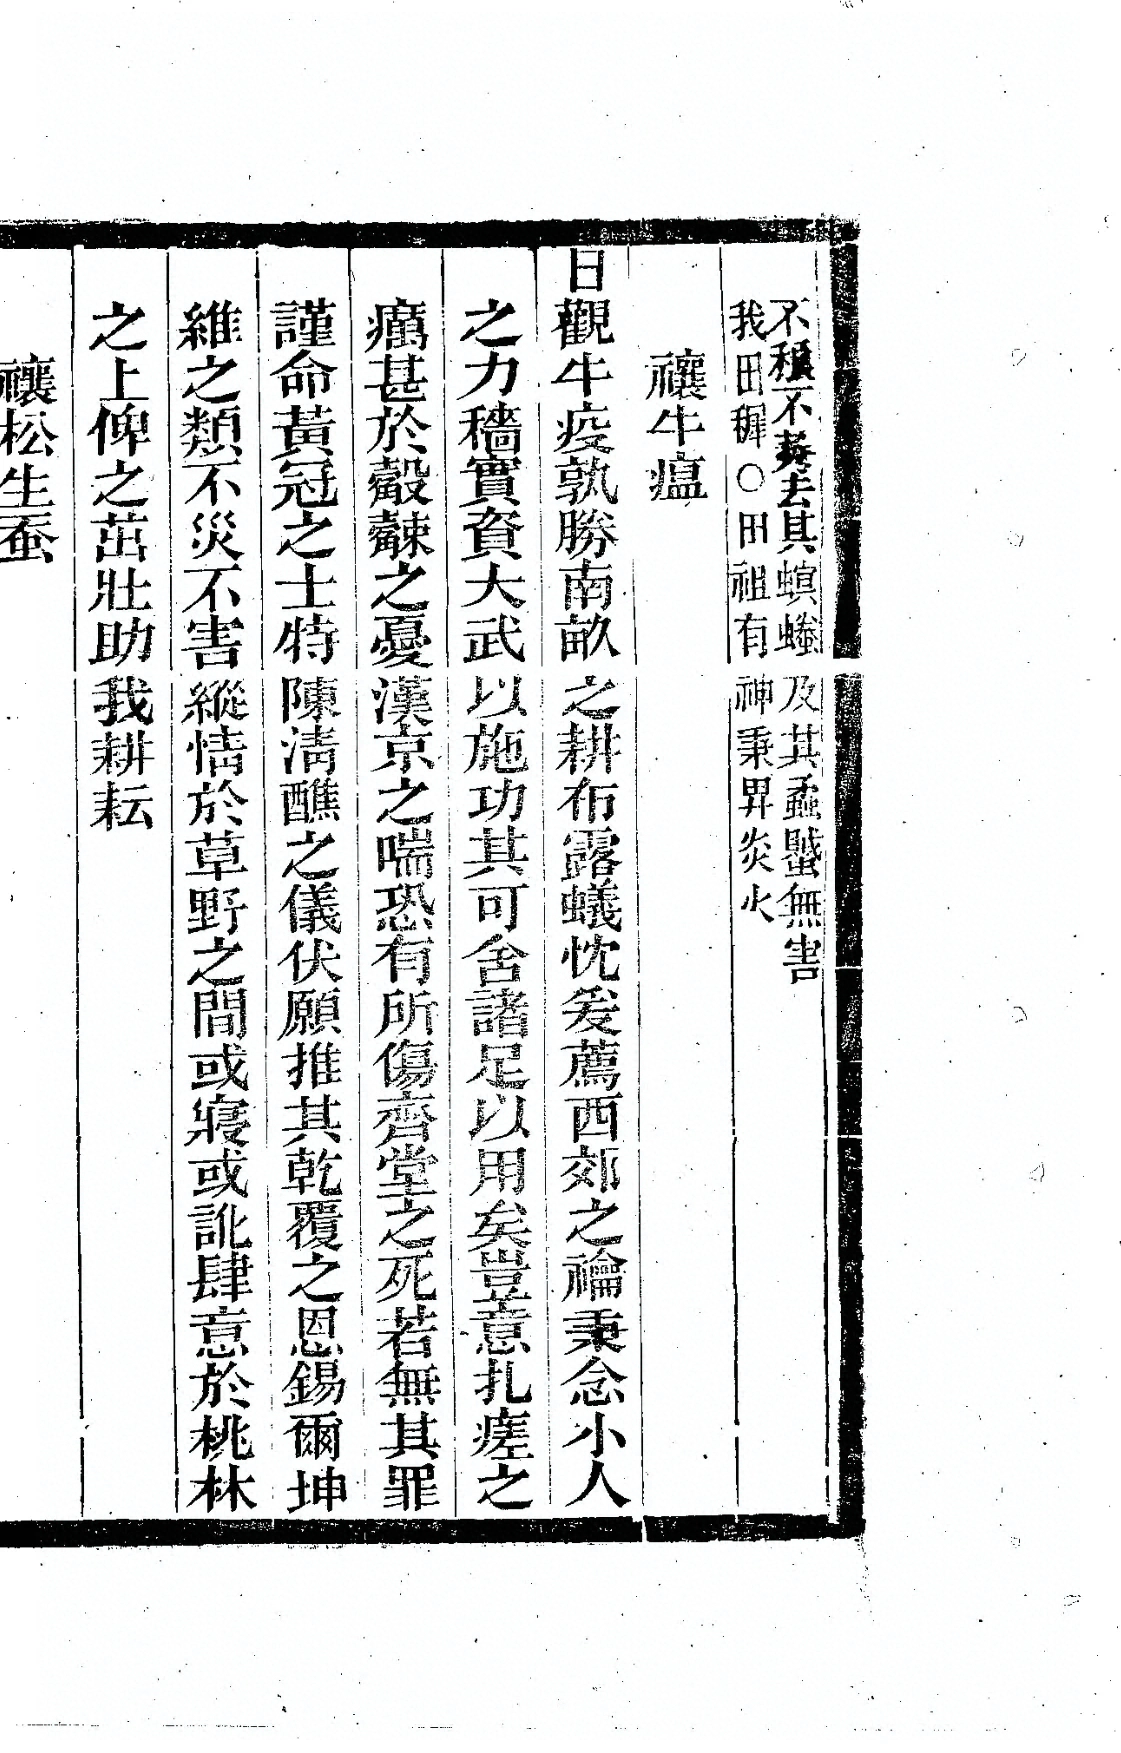 不稂不莠去其螟螣及其蟊蠈無害
我田穉○田祖有神秉畀炎火
禳牛瘟
日觀牛疫孰勝南畝之耕布露蟻忱爰薦西郊之禴秉念小人
之力穡實資大武以施功其可舍諸足以用矣豈意扎瘥之
癘甚於觳觫之憂漢京之喘恐有所傷齊堂之死若無其罪
謹命黃冠之士特陳淸醮之儀伏願推其乾覆之恩錫爾坤
維之類不災不害縱情於草野之間或寢或訛肆意於桃林
之上俾之茁壯助我耕耘
禳松生蚕